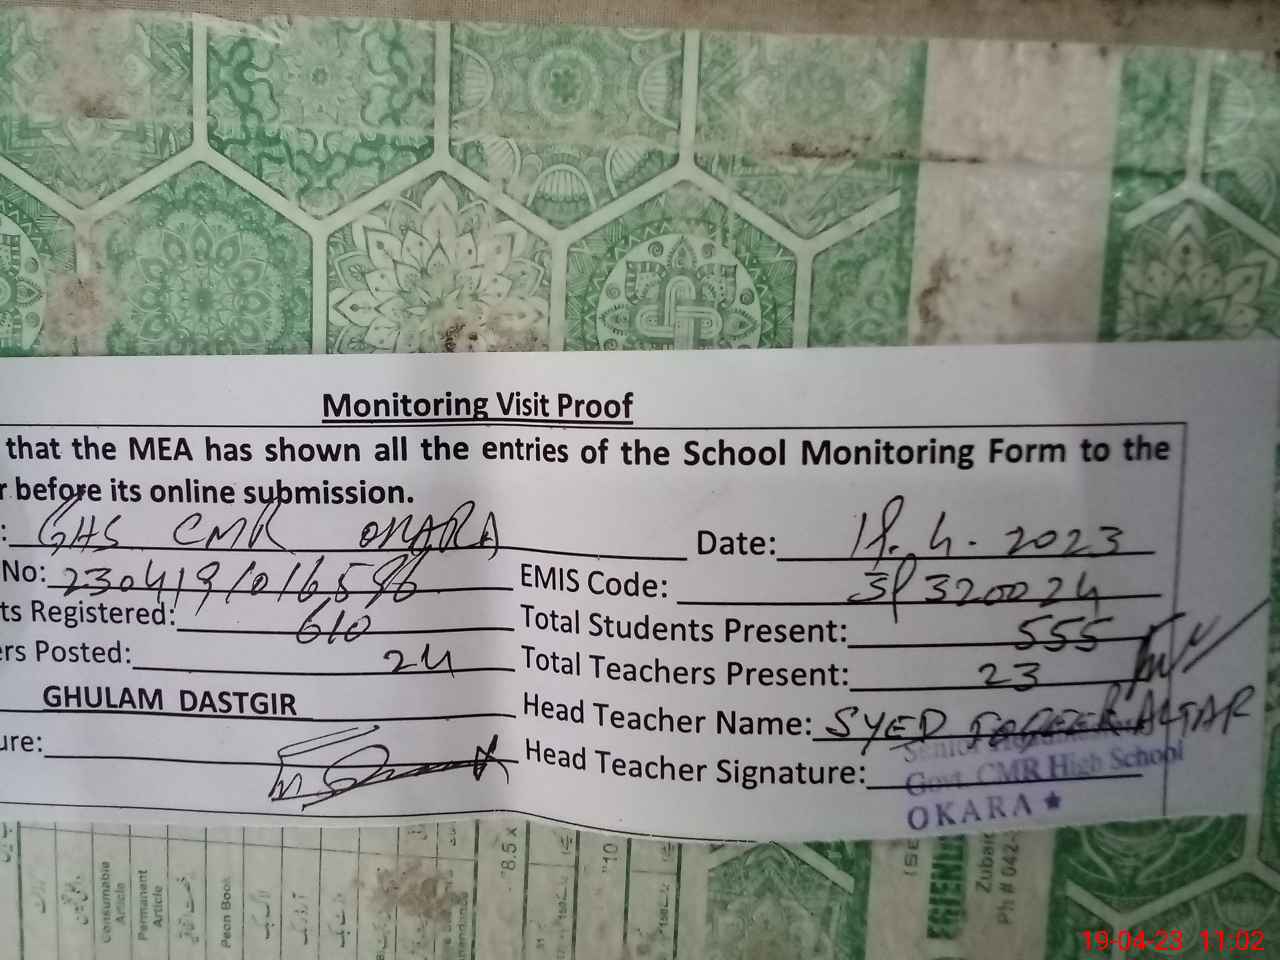 Monitoring Visit Proof
that the MEA has shown all the entries of the School Monitoring Form to the
r before its online submission.
: GHS CMR OKARA Date: 19.4.2023
No: 230419/016596 EMIS Code: 39320024
ts Registered: 610 Total Students Present: 555
ers Posted: 24 Total Teachers Present: 23
GHULAM DASTGIR Head Teacher Name: SYED
ure: Head Teacher Signature:
Senior
Govt. CMR High School
OKARA ★
Consumable Article
Permanent Article
Peon Book
8.5 x
"10
Zubai
Ph # 042-
19-04-23 11:02